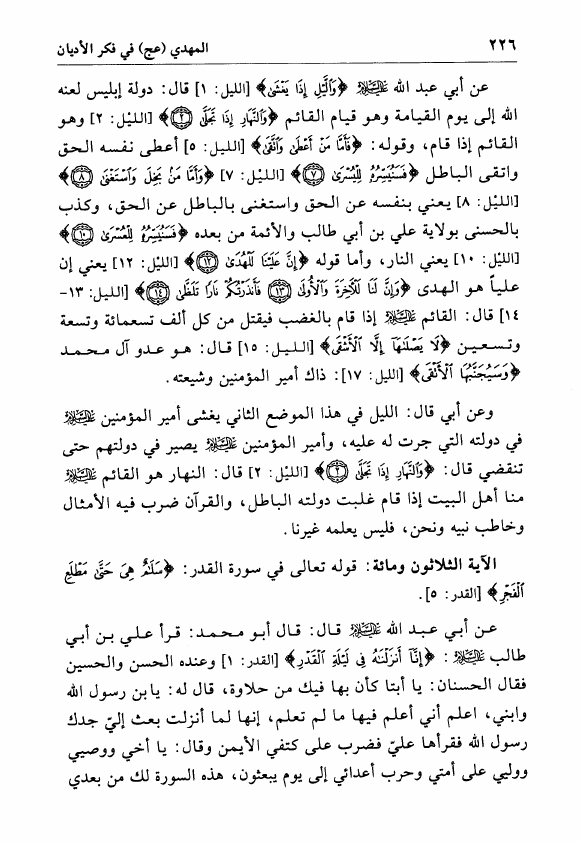 ٢٢٦ المهدي (عج) في فكر الأديان
عن أبي عبد الله عليه السلام ﴿وَٱلَّيۡلِ إِذَا يَغۡشَىٰ﴾ [الليل: ١] قال: دولة إبليس لعنه
الله إلى يوم القيامة وهو قيام القائم ﴿وَٱلنَّهَارِ إِذَا تَجَلَّىٰ ٢﴾ [الليْل: ٢] وهو
القائم إذا قام، وقوله: ﴿فَأَمَّا مَنۡ أَعۡطَىٰ وَٱتَّقَىٰ﴾ [الليل: ٥] أعطى نفسه الحق
واتقى الباطل ﴿فَسَنُيَسِّرُهُۥ لِلۡيُسۡرَىٰ ٧﴾ [الليْل: ٧] ﴿وَأَمَّا مَنۢ بَخِلَ وَٱسۡتَغۡنَىٰ ٨﴾
[الليْل: ٨] يعني بنفسه عن الحق واستغنى بالباطل عن الحق، وكذب
بالحسنى بولاية علي بن أبي طالب والأئمة من بعده ﴿فَسَنُيَسِّرُهُۥ لِلۡعُسۡرَىٰ ١٠﴾
[الليْل: ١٠] يعني النار، وأما قوله ﴿إِنَّ عَلَيۡنَا لَلۡهُدَىٰ ١٢﴾ [الليْل: ١٢] يعني إن
علياً هو الهدى ﴿وَإِنَّ لَنَا لَلۡأٓخِرَةَ وَٱلۡأُولَىٰ ١٣ فَأَنذَرۡتُكُمۡ نَارٗا تَلَظَّىٰ ١٤﴾ [الليل: ١٣-
١٤] قال: القائم عليه السلام إذا قام بالغضب فيقتل من كل ألف تسعمائة وتسعة
وتسعين ﴿لَا يَصۡلَىٰهَآ إِلَّا ٱلۡأَشۡقَى﴾ [الليل: ١٥] قال: هو عدو آل محمد
﴿وَسَيُجَنَّبُهَا ٱلۡأَتۡقَى﴾ [الليل: ١٧]: ذاك أمير المؤمنين وشيعته.
وعن أبي قال: الليل في هذا الموضع الثاني يغشى أمير المؤمنين عليه السلام
في دولته التي جرت له عليه، وأمير المؤمنين عليه السلام يصير في دولتهم حتى
تنقضي قال: ﴿وَٱلنَّهَارِ إِذَا تَجَلَّىٰ ٢﴾ [الليْل: ٢] قال: النهار هو القائم عليه السلام
منا أهل البيت إذا قام غلبت دولته الباطل، والقرآن ضرب فيه الأمثال
وخاطب نبيه ونحن، فليس يعلمه غيرنا.
الآية الثلاثون ومائة: قوله تعالى في سورة القدر: ﴿سَلَٰمٌ هِيَ حَتَّىٰ مَطۡلَعِ
ٱلۡفَجۡرِ﴾ [القدر: ٥].
عن أبي عبد الله عليه السلام قال: قال أبو محمد: قرأ علي بن أبي
طالب عليه السلام: ﴿إِنَّآ أَنزَلۡنَٰهُ فِي لَيۡلَةِ ٱلۡقَدۡرِ﴾ [القدر: ١] وعنده الحسن والحسين
فقال الحسنان: يا أبتا كأن بها فيك من حلاوة، قال له: يابن رسول الله
وابني، اعلم أني أعلم فيها ما لم تعلم، إنها لما أنزلت بعث إليّ جدك
رسول الله فقرأها عليّ فضرب على كتفي الأيمن وقال: يا أخي ووصيي
ووليي على أمتي وحرب أعدائي إلى يوم يبعثون، هذه السورة لك من بعدي